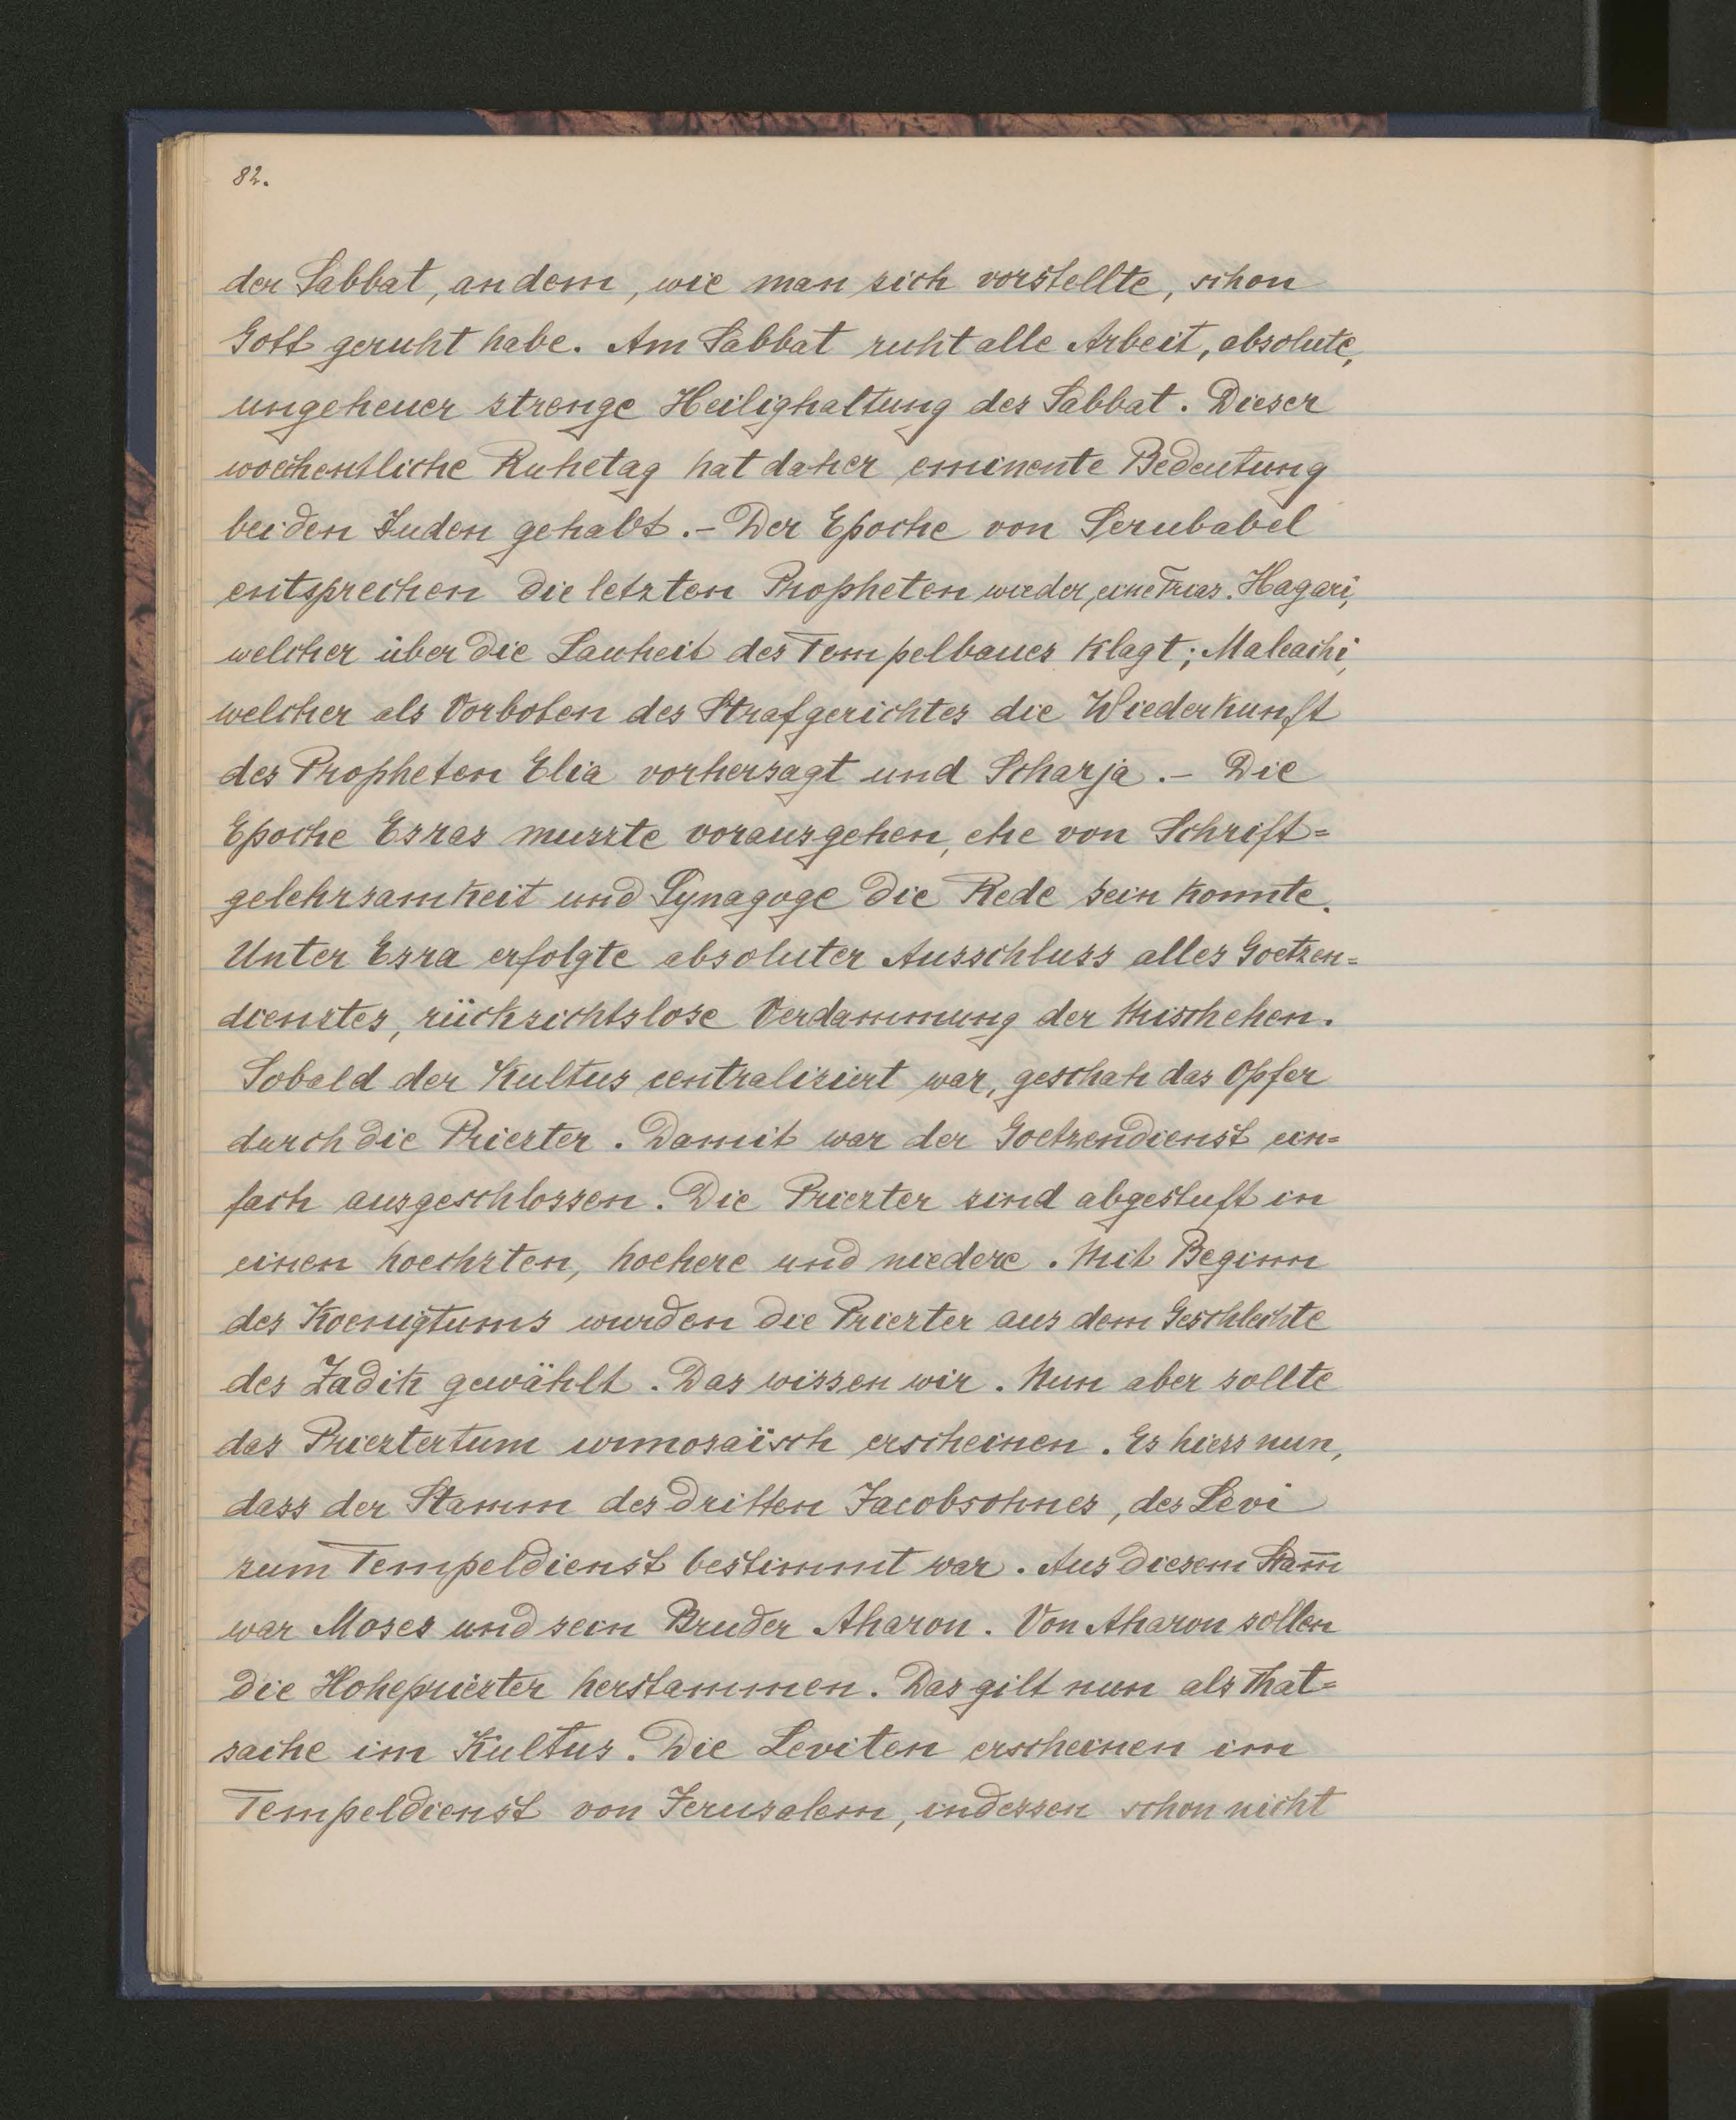 82.
der Sabbat, an dem, wie man sich vorstellte, schon
Gott geruht habe. Am Sabbat ruht alle Arbeit, absolute,
ungeheuer strenge Heilighaltung des Sabbat. Dieser
woechentliche Ruhetag hat daher eminente Bedeutung
bei den Juden gehabt.- Der Epoche von Serubabel
entsprechen die letzten Propheten wieder, eine Trias. Hagari,
welcher über die Lauheit des Tempelbaues klagt; Maleachi,
welcher als Vorboten des Strafgerichtes die Wiederkunft
des Propheten Elia vorhersagt und Scharja.- Die
Epoche Esras musste vorausgehen, ehe von Schrift=
gelehrsamkeit und Synagoge die Rede sein konnte.
Unter Esra erfolgte absoluter Ausschluss alles Goetzen=
dienstes, rücksichtslose Verdammung der Mischehen.
Sobald der Kultus centralisiert war, geschah das Opfer
durch die Priester. Damit war der Goetzendienst ein=
fach ausgeschlossen. Die Priester sind abgestuft in
einen hoechsten, hoehere und niedere. Mit Beginn
des Koenigtums wurden die Priester aus dem Geschlechte
des Zadik gewählt. Das wissen wir. Nun aber sollte
das Priestertum urmosaïsch erscheinen. Es hiess nun,
dass der Stamm des dritten Jacobsohnes, des Levi
zum Tempeldienst bestimmt war. Aus diesem Stam̅
war Moses und sein Bruder Aharon. Von Aharon sollen
die Hohepriester herstammen. Das gilt nun als That=
sache im Kultus. Die Leviten erscheinen im
Tempeldienst von Jerusalem, indessen schon nicht